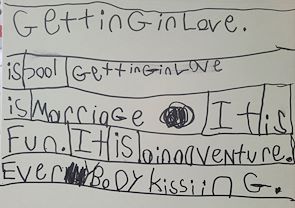 GettinGinLove.
is pool GettinGinLove
is Marriage It is
Fun. It is oinoqventure.
EveryBoDY kissiinG.